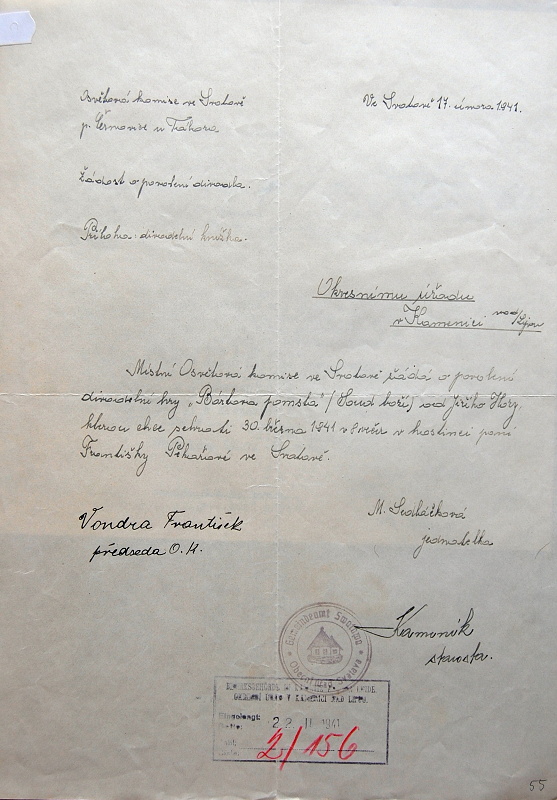 Osvětová komise ve Svatavě
p. Černovice u Tábora
Ve Svatavě 17. února 1941.
Žádost o povolení divadla.
Příloha: divadelní knížka.
Okresnímu úřadu
v Kamenici nad/Lipou
Místní Osvětová komise ve Svatavě žádá o povolení
divadelní hry „Bártova pomsta" / Soud boží / od Jiřího
kterou chce sehrati 30. března 1941 v 8 večer v hostinci paní
Františky Pekařové ve Svatavě.
M. Sedláčková
jednatelka
Vondra František
předseda O. K.
Kameník
starosta.
Gemeindeamt Swatawa
Obecní úřad Svatava
IN KAMENITZ A. D. LINDE.
OKRESNÍ ÚŘAD V KAMENICI NAD LIPOU.
Eingelangt:
22. II. 1941
2/156
55